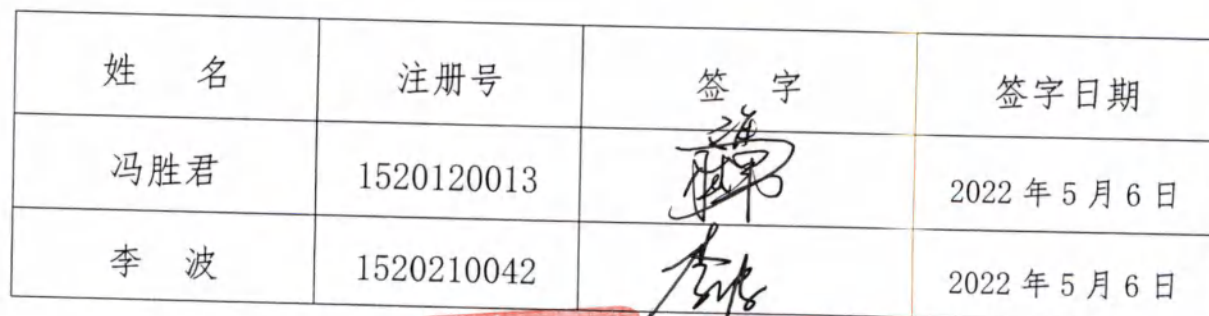 姓 名 注册号 签 字 签字日期
冯胜君 1520120013 2022年5月6日
李 波 1520210042 李波 2022年5月6日